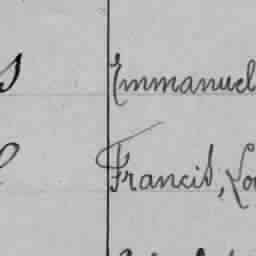 Emmanuel
Francis, Lo